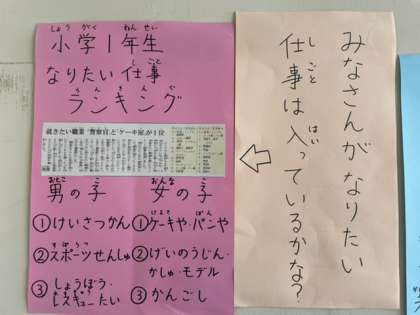 小学1年生
なりたい仕事
ランキング
就きたい職業 警察官とケーキ屋が1位
男の子
①けいさつかん
②スポーツせんしゅ
③しょうぼう・
レスキューたい
女の子
①ケーキや・パンや
②げいのうじん・
かしゅ・モデル
③かんごし
みなさんがなりたい
仕事は入っているかな?